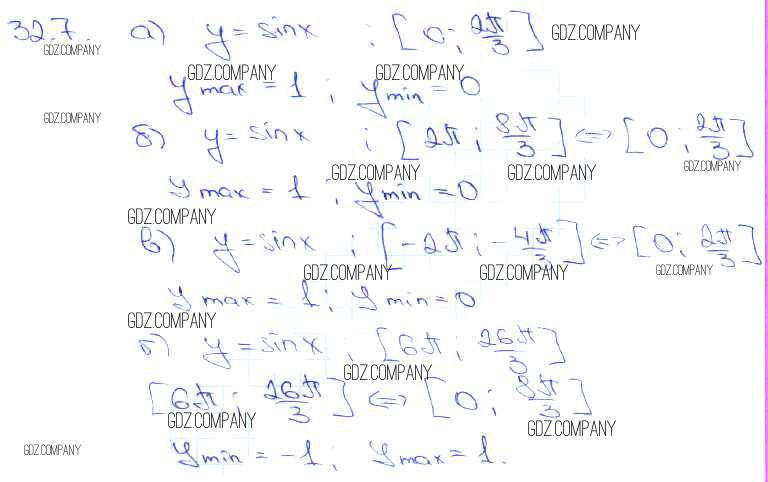 32.7. а) y = sinx ; [0; 2π/3] GDZ.COMPANY
GDZ.COMPANY
GDZ.COMPANY GDZ.COMPANY
y max = 1 ; y min = 0
GDZ.COMPANY
б) y = sinx ; [2π ; 8π/3] <=> [0 ; 2π/3]
GDZ.COMPANY GDZ.COMPANY GDZ.COMPANY
y max = 1 ; y min = 0
GDZ.COMPANY
в) y = sinx ; [-2π ; -4π/3] <=> [0 ; 2π/3]
GDZ.COMPANY GDZ.COMPANY GDZ.COMPANY
y max = 1 ; y min = 0
GDZ.COMPANY
г) y = sinx ; [6π ; 26π/3]
GDZ.COMPANY
[6π ; 26π/3] <=> [0 ; 8π/3]
GDZ.COMPANY GDZ.COMPANY
GDZ.COMPANY y min = -1 ; y max = 1.